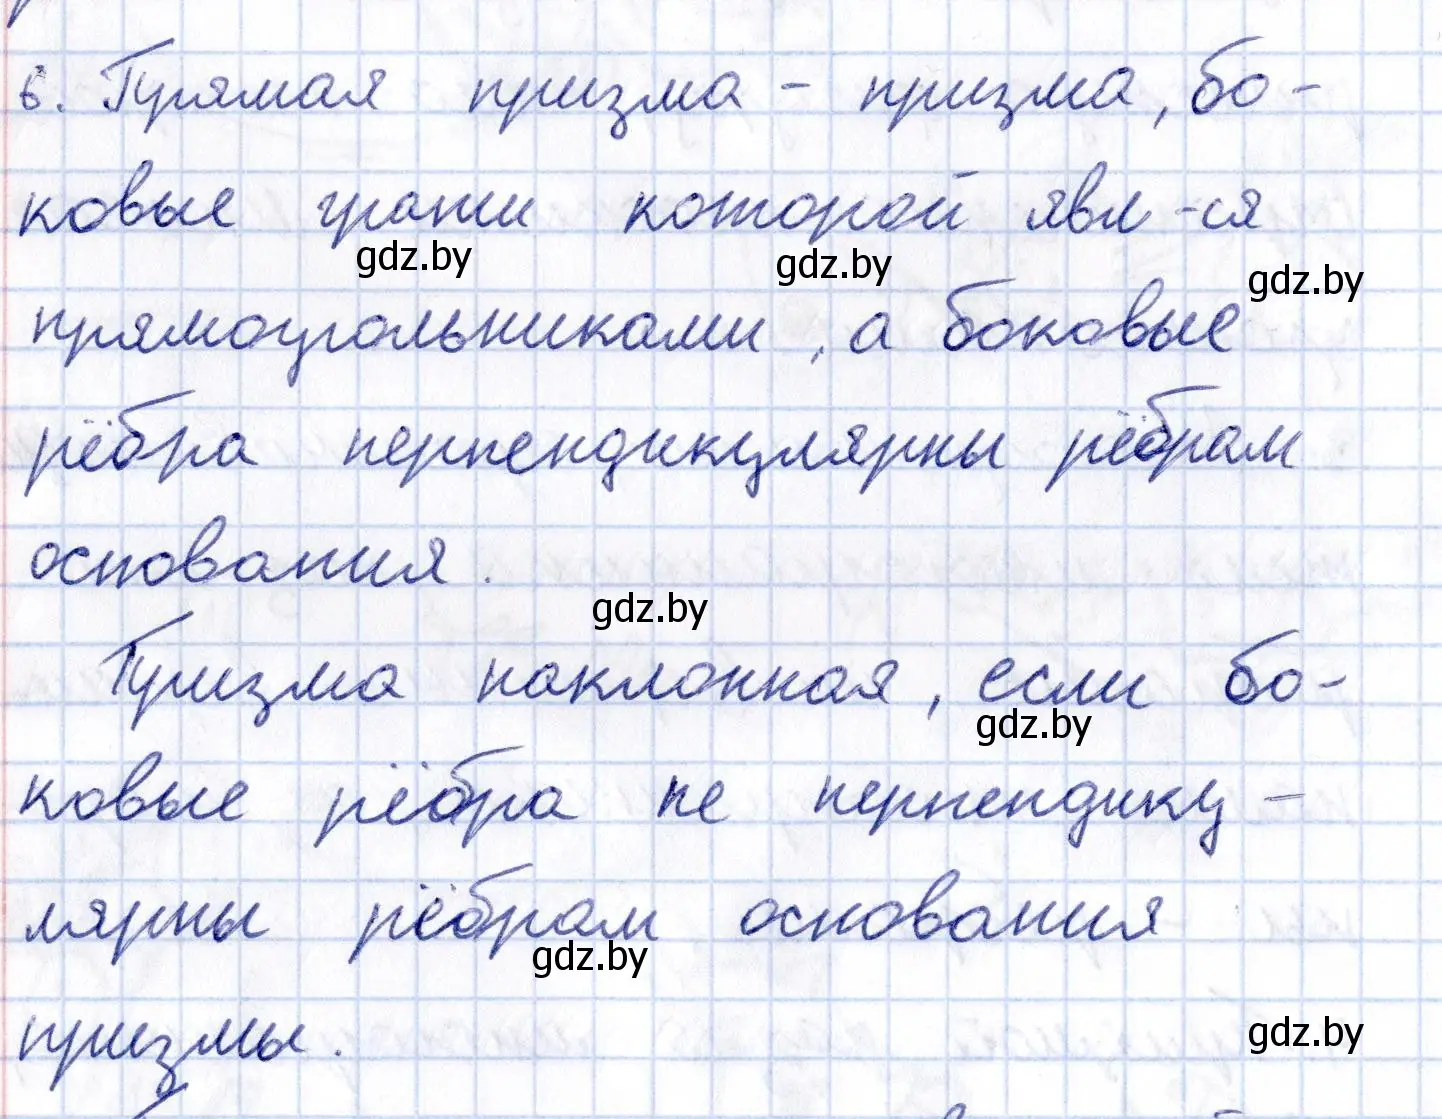 6. Прямая призма - призма, бо-
ковые грани которой явл-ся
gdz.by gdz.by gdz.by
прямоугольниками, а боковые
рёбра перпендикулярны рёбрам
основания.
gdz.by
Призма наклонная, если бо-
gdz.by
ковые рёбра не перпендику-
лярны рёбрам основания
gdz.by
призмы.
gdz.by